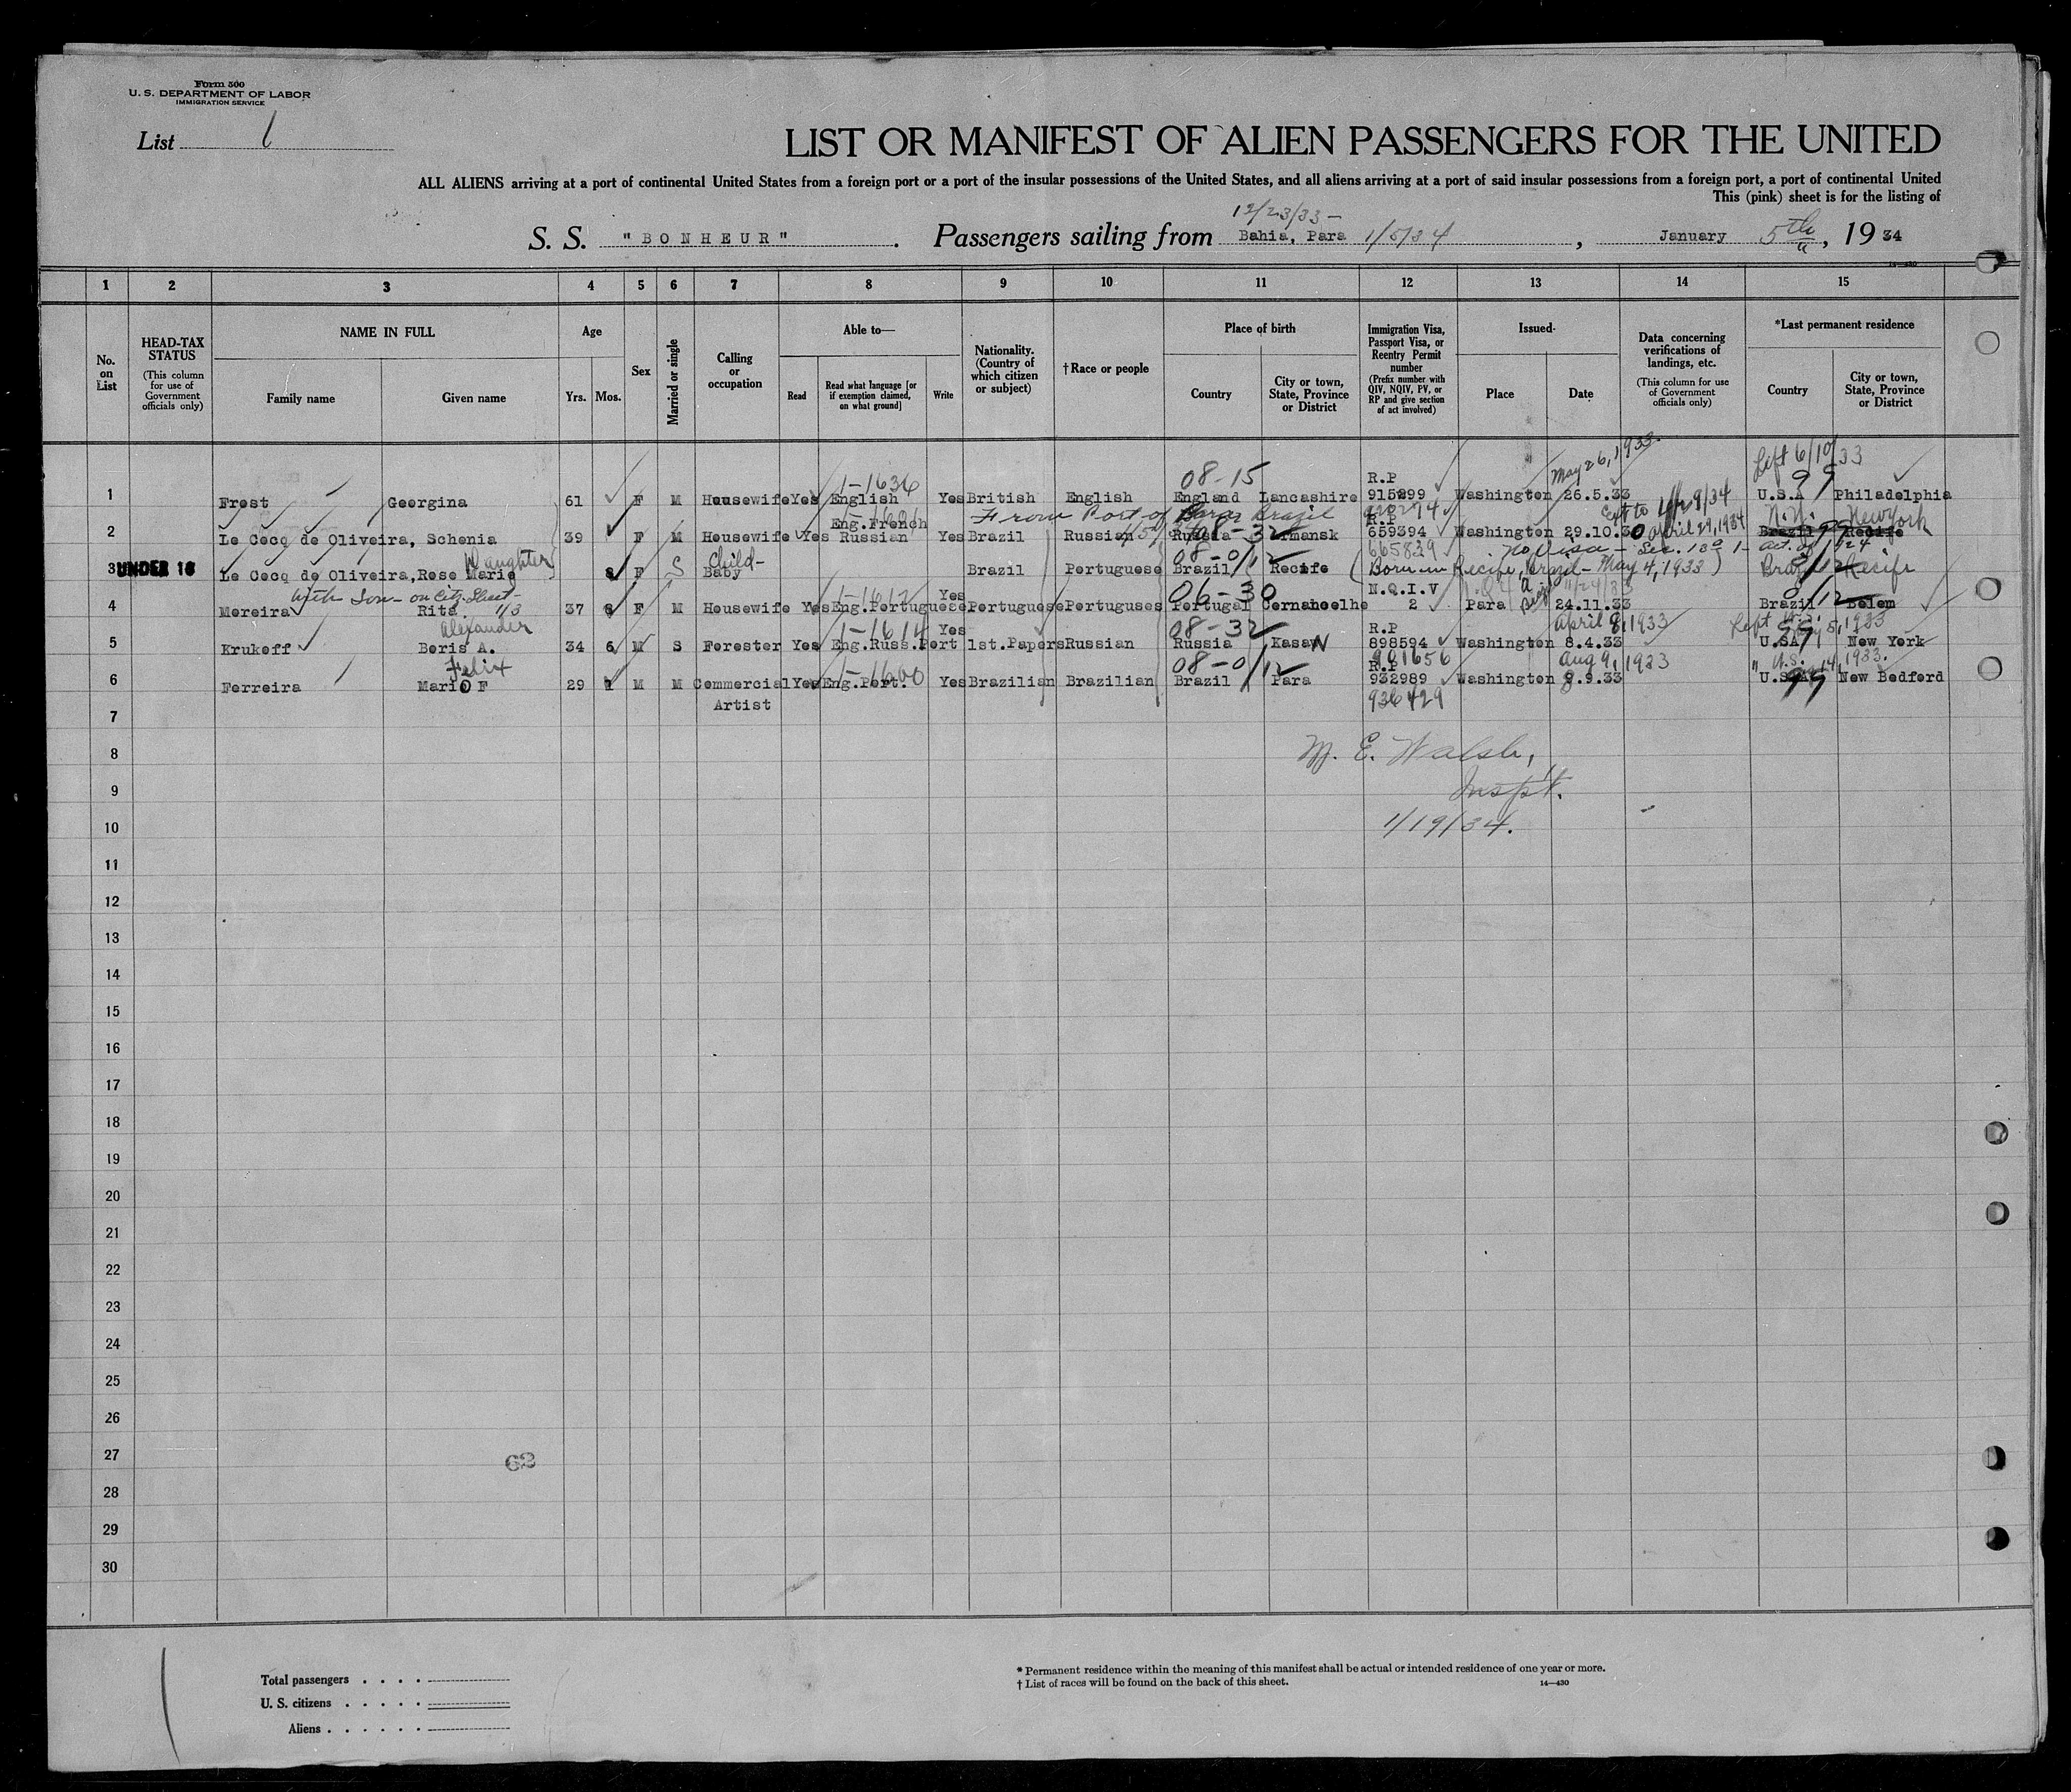 Form 500
U. S. DEPARTMENT OF LABOR
IMMIGRATION SERVICE
List 1
LIST OR MANIFEST OF ALIEN PASSENGERS FOR THE UNITED
ALL ALIENS arriving at a port of continental United States from a foreign port or a port of the insular possessions of the United States, and all aliens arriving at a port of said insular possessions from a foreign port, a port of continental United
This (pink) sheet is for the listing of
12/23/33 –
S. S. "BONHEUR" . Passengers sailing from Bahia, Para 1/5/34 , January 5th, 19 34
14—430
1 2 3 4 5 6 7 8 9 10 11 12 13 14 15
No. on List
HEAD-TAX STATUS (This column for use of Government officials only)
NAME IN FULL
Family name Given name
Age
Yrs. Mos.
Sex
Married or single
Calling or occupation
Able to—
Read Read what language [or if exemption claimed, on what ground] Write
Nationality. (Country of which citizen or subject)
†Race or people
Place of birth
Country City or town, State, Province or District
Immigration Visa, Passport Visa, or Reentry Permit number (Prefix number with QIV, NQIV, PV, or RP and give section of act involved)
Issued-
Place Date
Data concerning verifications of landings, etc. (This column for use of Government officials only)
*Last permanent residence
Country City or town, State, Province or District
May 26, 1933 Left 6/10/33
1-1636 08-15 R.P 99
1 Frost Georgina 61 F M Housewife Yes English Yes British English England Lancashire 915899 Washington 26.5.33 U.S.A Philadelphia
From Port of Para Brazil
Eng.French R.P April 29, 1934 N.Y. New York
2 Le Cocq de Oliveira, Schenia 39 F M Housewife Yes Russian Yes Brazil Russian Russia 08-32 659394 Washington 29.10.30 Brazil 99 Recife
Daughter Child- 08-01/12 665829 No Visa – Sec. 13 Act. of 1924
3 UNDER 16 Le Cocq de Oliveira, Rose Marie 8 F S Baby Brazil Portuguese Brazil Recife (Born in Recife, Brazil – May 4, 1933) Brazil Recife
with Son – on Citz. Sheet – 1-1617 Yes 06-30 N.Q.I.V 11/24/33 01/12
4 Moreira Rita 1/3 37 6 F M Housewife Yes Eng.Portuguese Portuguese Portuguses Portugal Cernahoelhe 2 Para 24.11.33 Brazil Belem
Alexander 1-1614 Yes 08-32 R.P April 8, 1933
5 Krukoff Boris A. 34 6 M S Forester Yes Eng.Russ.Port 1st.Papers Russian Russia KasaN 898594 Washington 8.4.33 U.S.A 99 New York
Felix 1-1600 08-01/12 901656 R.P Aug 9, 1933
6 Ferreira MariO F 29 M M Commercial Yes Eng.Port. Yes Brazilian Brazilian Brazil Para 932989 Washington 9.9.33 U.S.A 99 New Bedford
7 Artist 936429
8 M. E. Walsh,
9 Inspt.
10 1/19/34.
11
12
13
14
15
16
17
18
19
20
21
22
23
24
25
26
27 62
28
29
30
Total passengers . . . .
U. S. citizens . . . . .
Aliens . . . . . .
* Permanent residence within the meaning of this manifest shall be actual or intended residence of one year or more.
† List of races will be found on the back of this sheet. 14—430